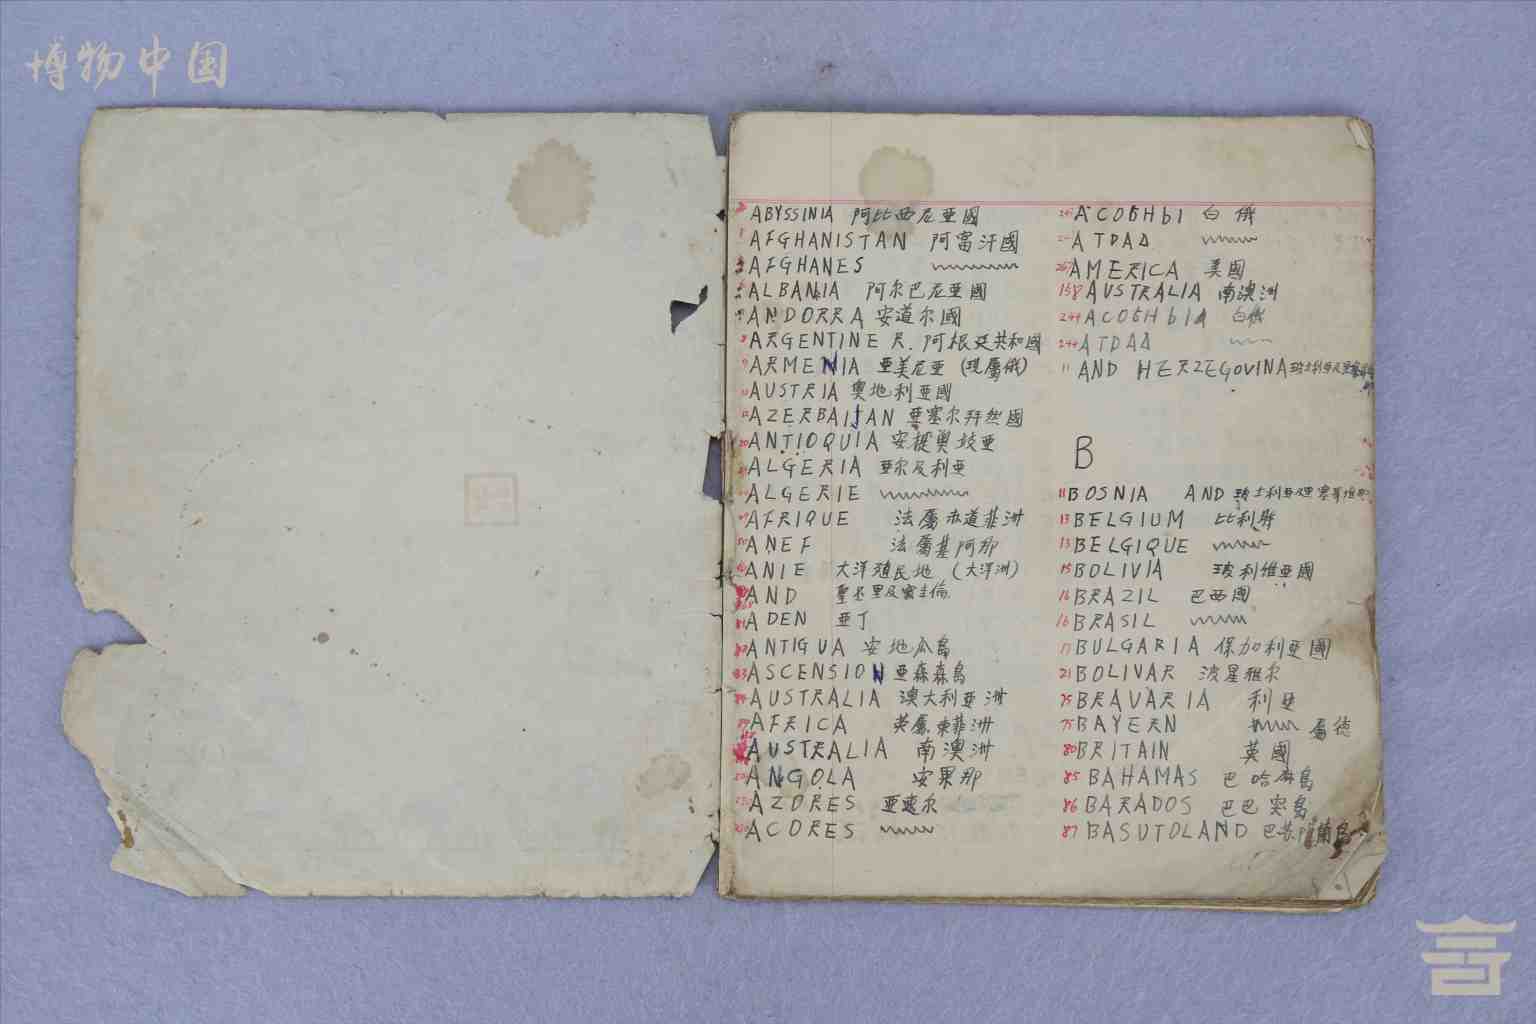 博物中国
ABYSSINIA 阿比西尼亜國
AFGHANISTAN 阿富汗國
AFGHANES
ALBANIA 阿尔巴尼亜國
ANDORRA 安道尔國
ARGENTINE R. 阿根廷共和國
ARMENIA 亜美尼亜 (現屬俄)
AUSTRIA 奧地利亜國
AZERBAIJAN 亜塞尔拜然國
ANTIOQUIA 安提奧坡亜
ALGERIA 亜尔及利亜
ALGERIE
AFRIQUE 法屬赤道菲洲
ANEF 法屬基阿那
ANIE 大洋殖民地 (大洋洲)
AND
ADEN 亜丁
ANTIGUA 安地瓜島
ASCENSION 亜森森島
AUSTRALIA 澳大利亜洲
AFRICA 英屬東菲洲
AUSTRALIA 南澳洲
ANGOLA 安果那
AZORES 亜速尔
ACORES
ACOБHЫ 白俄
ATDAA
AMERICA 美國
158 AUSTRALIA 南澳洲
244 ACOБHЫA 白俄
244 ATDAA
11 AND HERZEGOVINA
B
11 BOSNIA AND
13 BELGIUM 比利時
13 BELGIQUE
15 BOLIVIA 玻利維亜國
16 BRAZIL 巴西國
16 BRASIL
17 BULGARIA 保加利亜國
21 BOLIVAR 波星雅尔
75 BRAVARIA 利亜
75 BAYERN 屬德
80 BRITAIN 英國
85 BAHAMAS 巴哈麻島
86 BARADOS 巴巴突島
87 BASUTOLAND